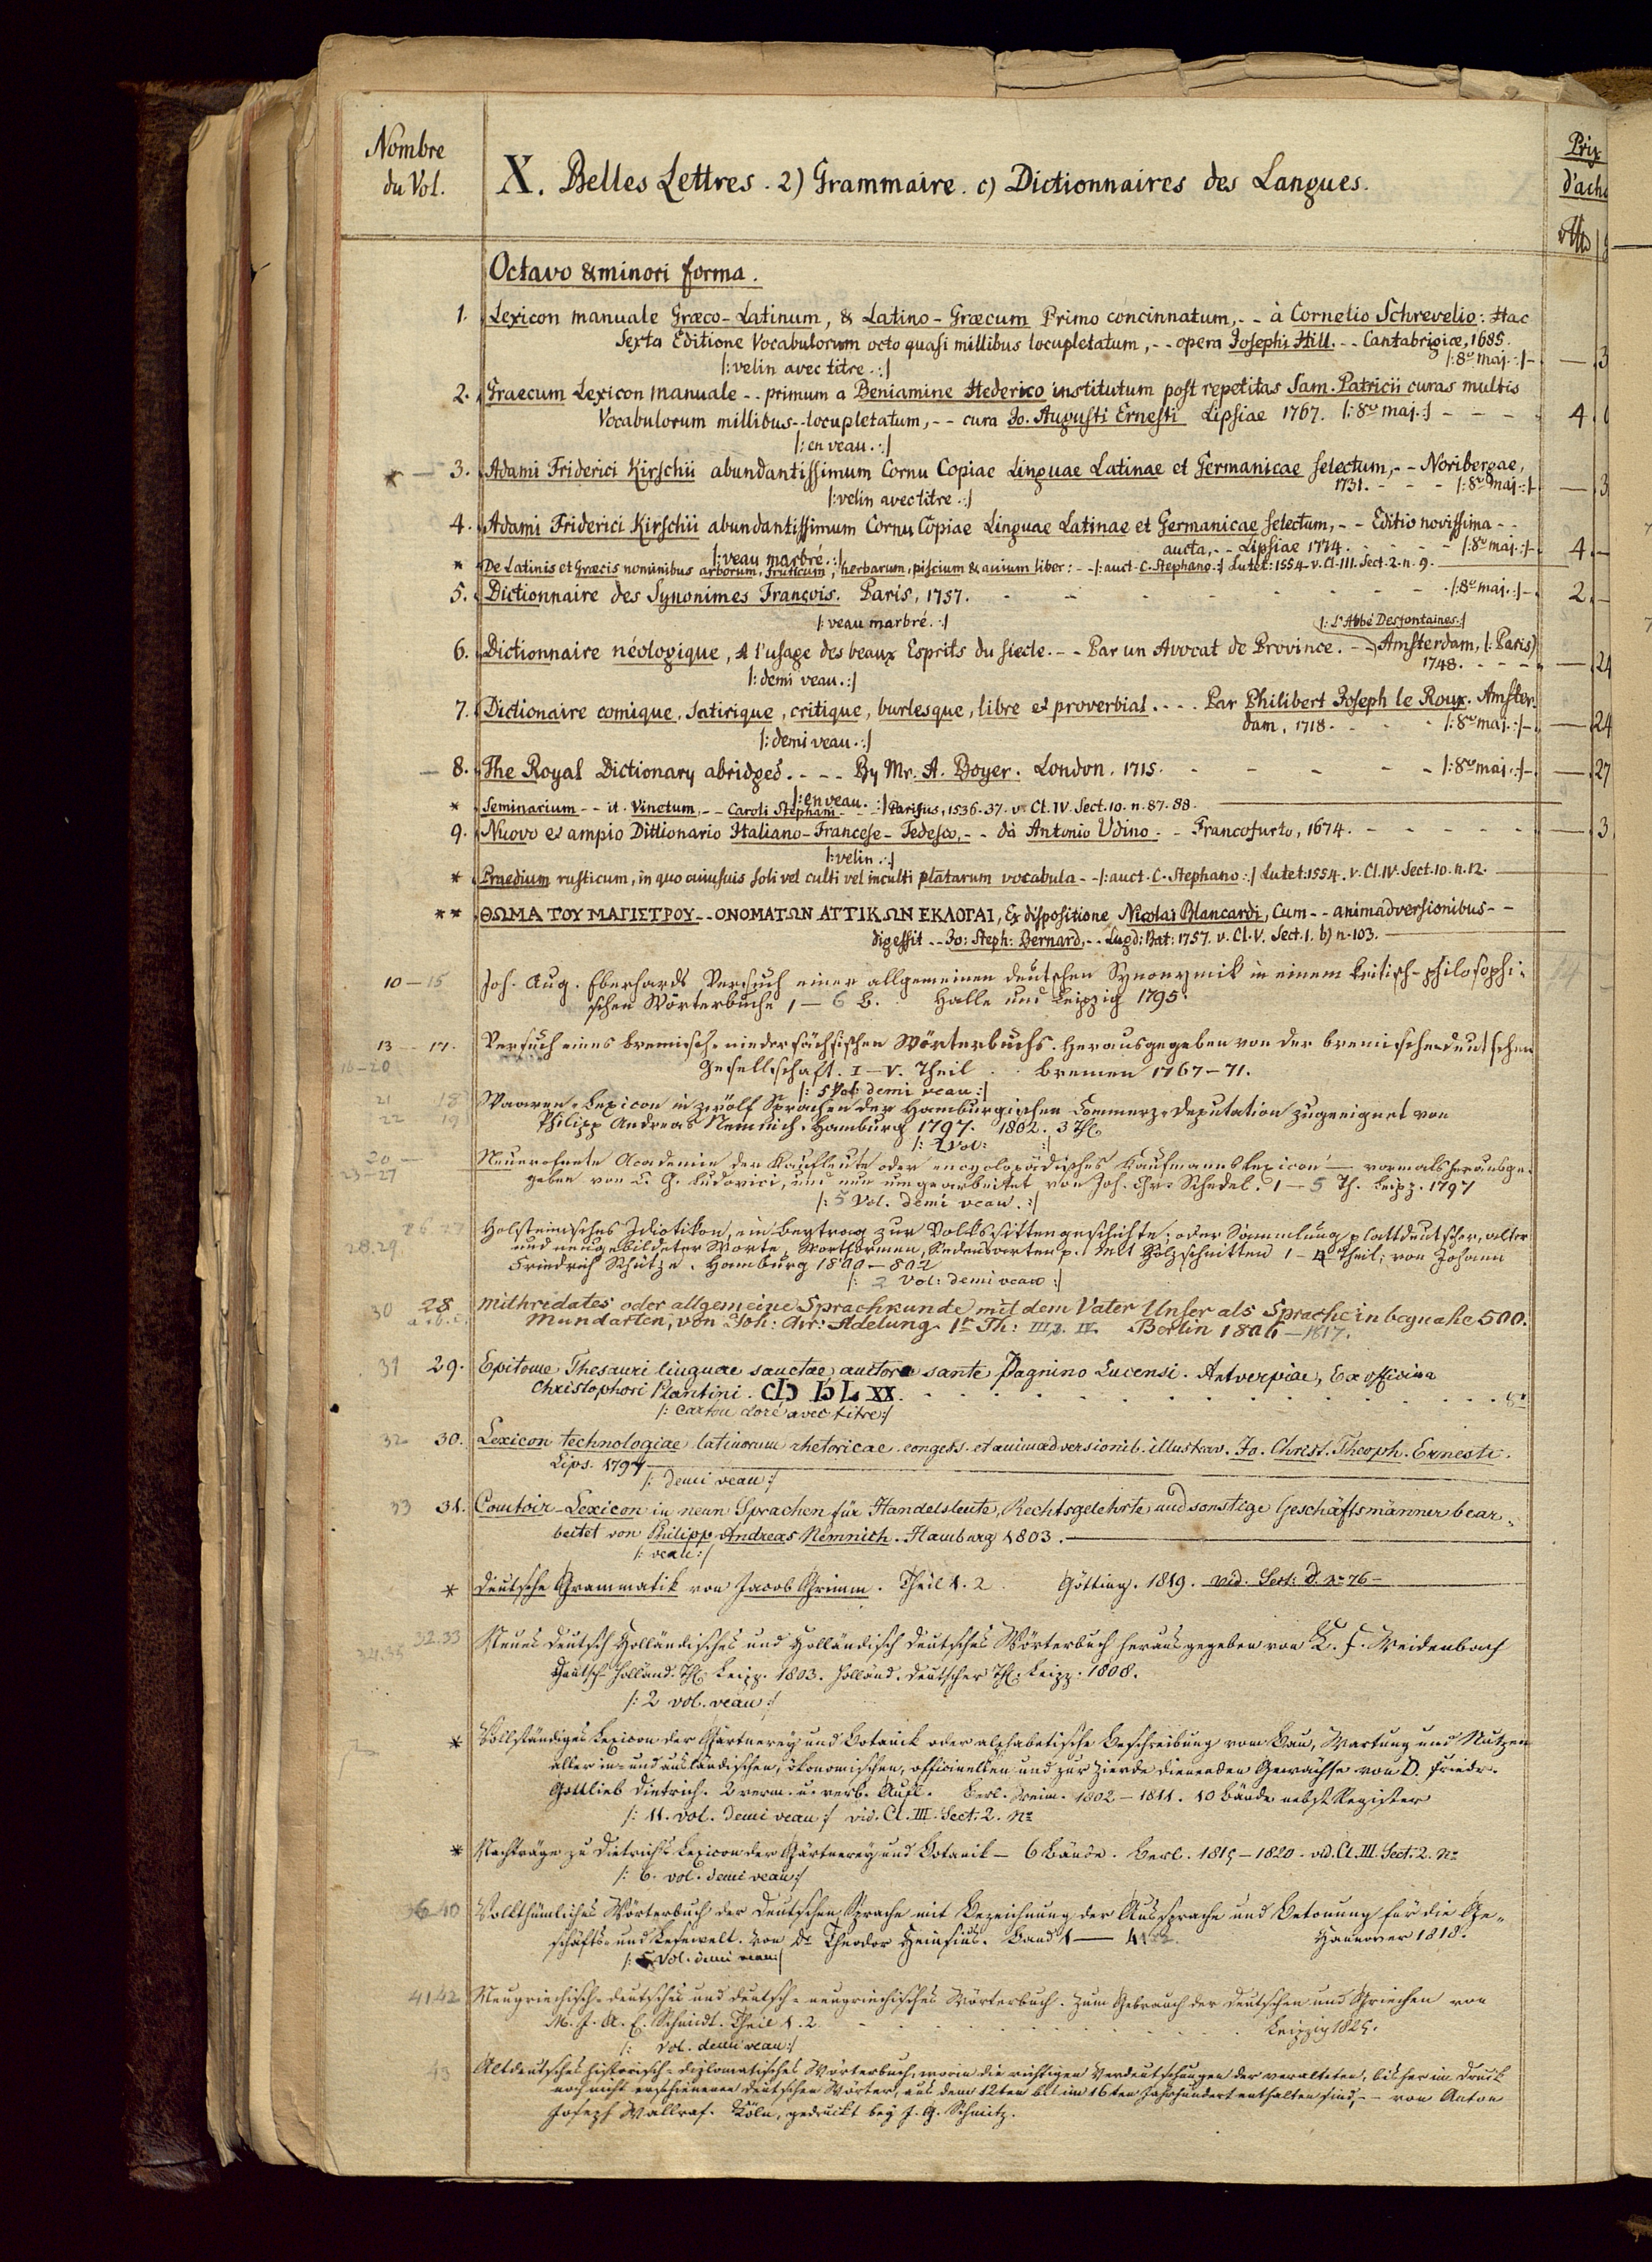 Nombre
du Vol.
X. Belles Lettres. 2) Grammaire. c) Dictionnaires des Langues.
Prix
d'ach
Octavo & minori forma.
1. Lexicon manuale Græco-Latinum, & Latino-Græcum Primo concinnatum, - - à Cornelio Schrevelio: Hac
Sexta Editione Vocabulorum octo quasi millibus locupletatum, - - opera Josephi Hill. - - Cantabrigiæ, 1685.
|: velin avec titre. :| |: 8vo maj. :| - — 3
2. Graecum Lexicon manuale - - primum a Beniamine Hederico institutum post repetitas Sam. Patricii curas multis
Vocabulorum millibus - - locupletatum, - - cura Jo. Augusti Ernesti Lipsiae 1767. |: 8vo maj. :| - - - 4.
|: en veau. :|
* — 3. Adami Friderici Kirschii abundantissimum Cornu Copiae Linguae Latinae et Germanicae selectum, - - Noribergae,
1731. - - - |: 8vo maj. :| - — 3
|: velin avec titre. :|
4. Adami Friderici Kirschii abundantissimum Cornu Copiae Linguae Latinae et Germanicae selectum, - - Editio novissima - -
aucta, - - Lipsiae 1774. - - - - |: 8vo maj. :| - 4. —
|: veau marbré. :|
* De Latinis et Græcis nominibus arborum, fruticum, herbarum, piscium & avium liber: - - |: auct. C. Stephano. :| Lutet: 1554. v. Cl. III. Sect. 2. n. 9.
5. Dictionnaire des Synonimes François. Paris, 1757. - - - - - - - |: 8vo maj. :| - 2. —
|: veau marbré. :|
|: L'Abbé Desfontaines. :|
6. Dictionnaire néologique, à l'usage des beaux Esprits du siecle. - - Par un Avocat de Province. - - Amsterdam, (: Paris)
1748. - - - - — 24
|: demi veau. :|
7. Dictionaire comique, satirique, critique, burlesque, libre et proverbial. . . . Par Philibert Joseph le Roux. Amster-
dam, 1718. - - - |: 8vo maj. :| - — 24
|: demi veau. :|
— 8. The Royal Dictionary abridged. - - - By Mr. A. Boyer. London. 1715. - - - - - |: 8vo maj. :| - — 27
|: en veau. :|
* Seminarium - - it. Vinetum, - - Caroli Stephani - - - Parisiis, 1536. 37. v. Cl. IV. Sect. 10. n. 87. 88.
9. Nuovo et ampio Dittionario Italiano-Francese-Tedesco, - - dà Antonio Udino. - - Francofurto, 1674. - - - - — 3
|: velin. :|
* Praedium rusticum, in quo cuiusuis soli vel culti vel inculti platarum vocabula - - |: auct. C. Stephano :| Lutet: 1554. v. Cl. IV. Sect. 10. n. 12.
** ΘΩΜΑ ΤΟΥ ΜΑΓΙΣΤΡΟΥ - - ΟΝΟΜΑΤΩΝ ΑΤΤΙΚΩΝ ΕΚΛΟΓΑΙ, Ex dispositione Nicolai Blancardi, Cum - - animadversionibus - -
digessit - - Jo: Steph: Bernard, - - Lugd: Bat: 1757. v. Cl. V. Sect. 1. b) n. 103.
10 — 15 Joh. Aug. Eberhards Versuch einer allgemeinen deutschen Synonymik in einem kritisch-philosophi-
schen Wörterbuche 1 — 6 B. Halle und Leipzig 1795.
13 — 17. Versuch eines bremisch-niedersächsischen Wörterbuchs. Herausgegeben von der bremischen deutschen
16 — 20 Gesellschaft. I — V. Theil . . Bremen 1767 — 71.
|: 5 Vol: demi veau :|
21 18 Waaren-Lexicon in zwölf Sprachen der Hamburgischen Commerz-Deputation zugeeignet von
22 19 Philipp Andreas Nemnich. Hamburg 1797. 1802. 3 Th.
|: 2 Vol: :|
20 — Neueröfnete Academie der Kaufleute oder encyclopädisches Kaufmannslexicon — vormals herausge-
23 — 27 geben von C. G. Ludovici, und nun umgearbeitet von Joh. Chr. Schedel. 1 — 5 Th. Leipz. 1797
|: 5 Vol. demi veau. :|
26 27 Holsteinisches Idiotikon, ein Beytrag zur Volkssittengeschichte; oder Sammlung plattdeutscher, alter
28. 29. und neugebildeter Worte, Wortformen, Redensarten p. Mit Holzschnitten 1 — 4 Theil; von Johann
Friedrich Schütze. Hamburg 1800 — 802
|: 2 Vol: demi veau :|
30 28 Mithridates oder allgemeine Sprachkunde mit dem Vater Unser als Sprache in beynahe 500.
a. b. c. Mundarten, von Joh: Chr: Adelung. 1r Th: III. IV. Berlin 1806 — 1817.
31 29. Epitome Thesauri linguae sanctae, auctore sante Pagnino Lucensi. Antverpiae, Ex officina
Christophori Plantini. CIↃ IↃ L XX. . . . . . . 8o
|: Carton doré avec titre :|
32 30. Lexicon technologiae latinorum rhetoricae congess. et animadversionib. illustrav. Jo. Christ. Theoph. Ernesti.
Lips. 1797
|: demi veau :|
33 31. Comtoir-Lexicon in neun Sprachen für Handelsleute, Rechtsgelehrte und sonstige Geschäftsmänner bear-
beitet von Philipp Andreas Nemnich. Hamburg 1803.
|: veau :|
* Deutsche Grammatik von Jacob Grimm. Theil 1. 2. Götting. 1819. vid. Sect: d. no 76 —
32. 33 Neues Deutsch Holländisches und Holländisch Deutsches Wörterbuch herausgegeben von L. F. Weidenbach
34. 35 Deutsch-Holländ. Th. Leipz. 1803. Holländ. Deutscher Th. Leipz. 1808.
|: 2 vol. veau :|
* Vollständiges Lexicon der Gärtnerey und Botanick oder alphabetische Beschreibung vom Bau, Wartung und Nutzen
aller in- und ausländischen, ökonomischen, officinellen und zur Zierde dienenden Gewächse von D. Friedr.
Gottlieb Dietrich. 2 verm. u. verb. Aufl. Berl. Weim. 1802 — 1811. 10 Bände nebst Register
|: 11. vol. demi veau :| vid. Cl. III. Sect: 2. No
* Nachträge zu Dietrichs Lexicon der Gärtnerey und Botanik — 6 Bände. Berl. 1815 — 1820. vid. Cl. III. Sect: 2. No
|: 6. vol. demi veau :|
36 40 Volkthümliches Wörterbuch der Deutschen Sprache mit Bezeichnung der Aussprache und Betonung für die Ge-
schäfts- und Lesewelt. Von Dr Theodor Heinsius. Band 1 — 4 Hannover 1818.
|: 5 Vol. demi veau :|
41 42 Neugriechisch-deutsches und deutsch-neugriechisches Wörterbuch. Zum Gebrauch der Deutschen und Griechen von
M. J. A. E. Schmidt. Theil 1. 2 Leipzig 1825.
|: Vol. demi veau :|
43 Altdeutsches historisch-diplomatisches Wörterbuch, worin die richtigen Verdeutschungen der veralteten, bisher im Druck
noch nicht erschienenen deutschen Wörter, aus dem 12ten bis im 16ten Jahrhundert enthalten sind, - - von Anton
Joseph Wallraf. Köln, gedruckt bey J. G. Schmitz.